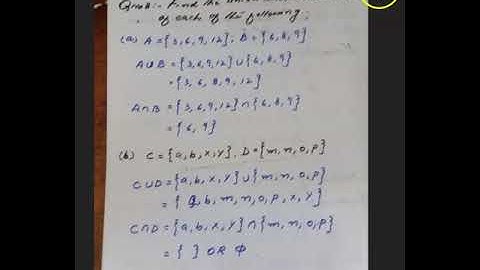 Find the
of each of the following.
(a) A = {3,6,9,12}; B = {6,8,9}
A∪B = {3,6,9,12} ∪ {6,8,9}
= {3,6,8,9,12}
A∩B = {3,6,9,12} ∩ {6,8,9}
= {6,9}
(b) C = {a,b,x,y}, D = {m,n,o,p}
C∪D = {a,b,x,y} ∪ {m,n,o,p}
= {a,b,m,n,o,p,x,y}
C∩D = {a,b,x,y} ∩ {m,n,o,p}
= { } OR Φ